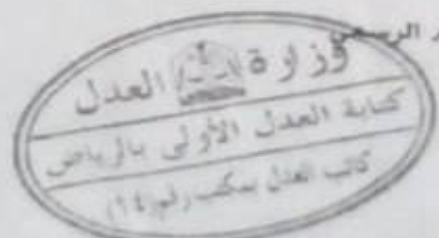 الرسمي
وزارة العدل
كتابة العدل الأولى بالرياض
كاتب العدل بمكتب رقم (١٤)